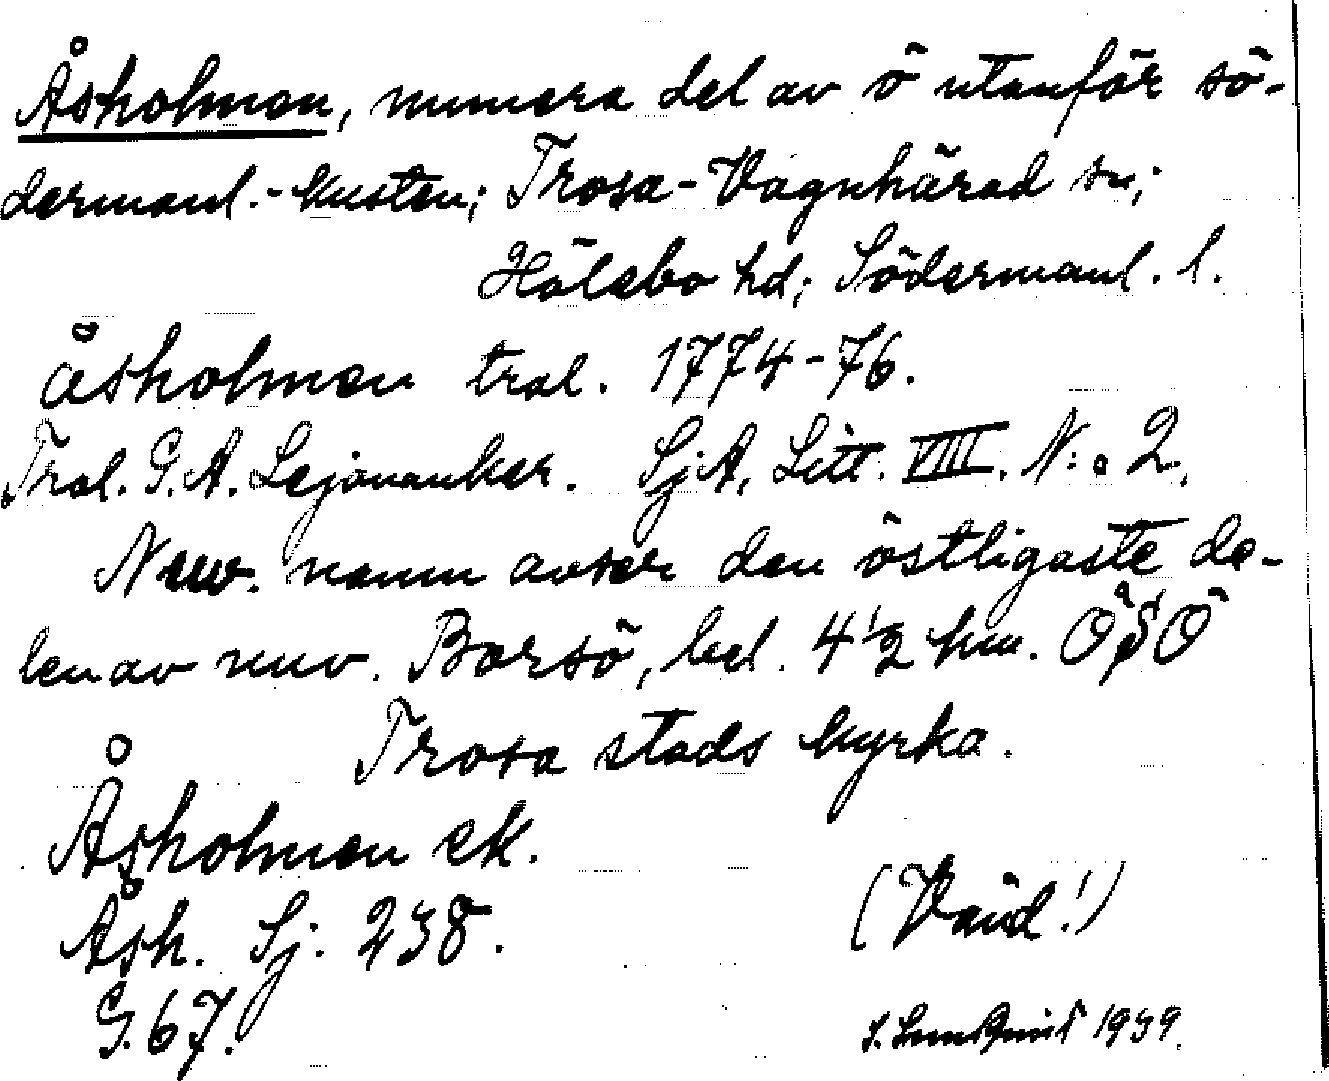 Åsholmen, numera del av ö utanför sö-
dermanl.-kusten; Trosa-Vagnhärad sn;
Hölebo hd; Södermanl. l.
åsholmen tral. 1774-76.
Tral. G. A. Lejonanker. SjA, Litt. VIII. N:o 2.
Nuv. namn avser den östligaste de-
len av nuv. Borsö, bel. 4 1/2 km. ÖSÖ
Trosa stads kyrka.
Åsholmen ek.
Åsh. Sj. 238.
G. 67.
(Vänd!)
1939.